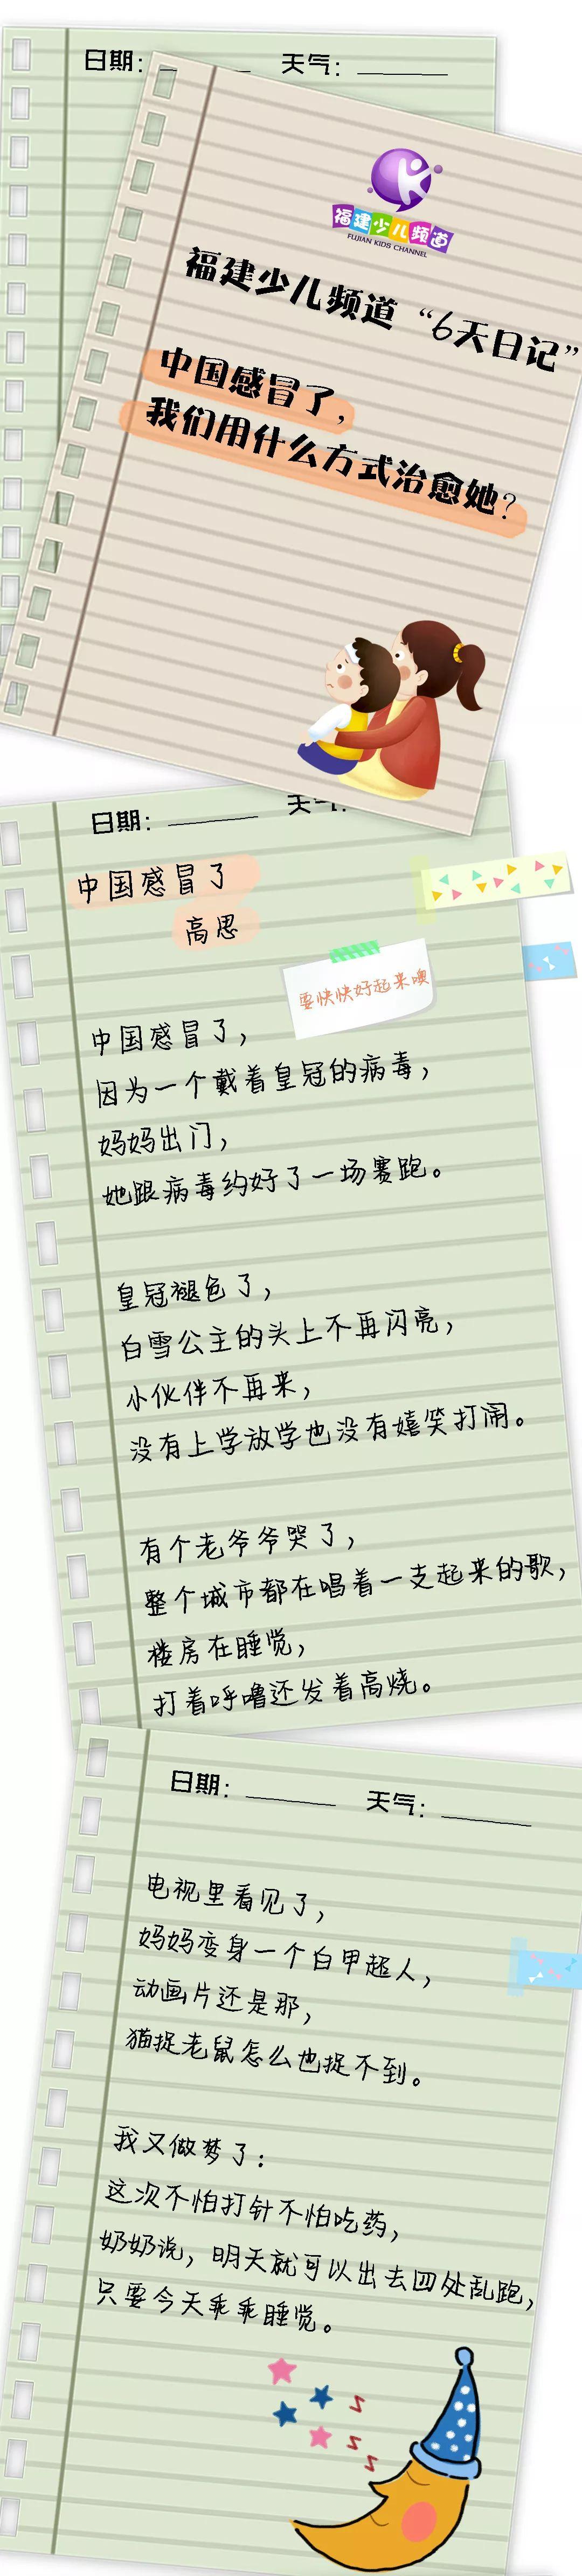 日期：
天气：
福建少儿频道
FUJIAN KIDS CHANNEL
福建少儿频道“6天日记”
中国感冒了，
我们用什么方式治愈她？
日期：
天气：
中国感冒了
高思
要快快好起来噢
中国感冒了，
因为一个戴着皇冠的病毒，
妈妈出门，
她跟病毒约好了一场赛跑。
皇冠褪色了，
白雪公主的头上不再闪亮，
小伙伴不再来，
没有上学放学也没有嬉笑打闹。
有个老爷爷哭了，
整个城市都在唱着一支起来的歌，
楼房在睡觉，
打着呼噜还发着高烧。
日期：
天气：
电视里看见了，
妈妈变身一个白甲超人，
动画片还是那，
猫捉老鼠怎么也捉不到。
我又做梦了：
这次不怕打针不怕吃药，
奶奶说，明天就可以出去四处乱跑，
只要今天乖乖睡觉。
z
z
z